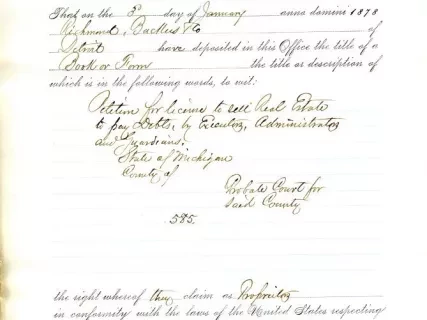 That on the 3d day of January anno domini 1878
Richmond, Backus & Co of
Detroit have deposited in this Office the title of a
Book or Form the title or description of
which is in the following words, to wit:
Petition for license to sell Real Estate
to pay Debts, by Executors, Administrators
and Guardians.
State of Michigan
County of
Probate Court for
said County
585.
the right whereof they claim as Proprietors
in conformity with the laws of the United States respecting